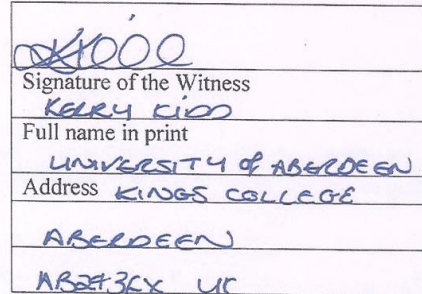 Signature of the Witness
KERRY KIDD
Full name in print
UNIVERSITY of ABERDEEN
Address KINGS COLLEGE
ABERDEEN
AB24 3FX UK